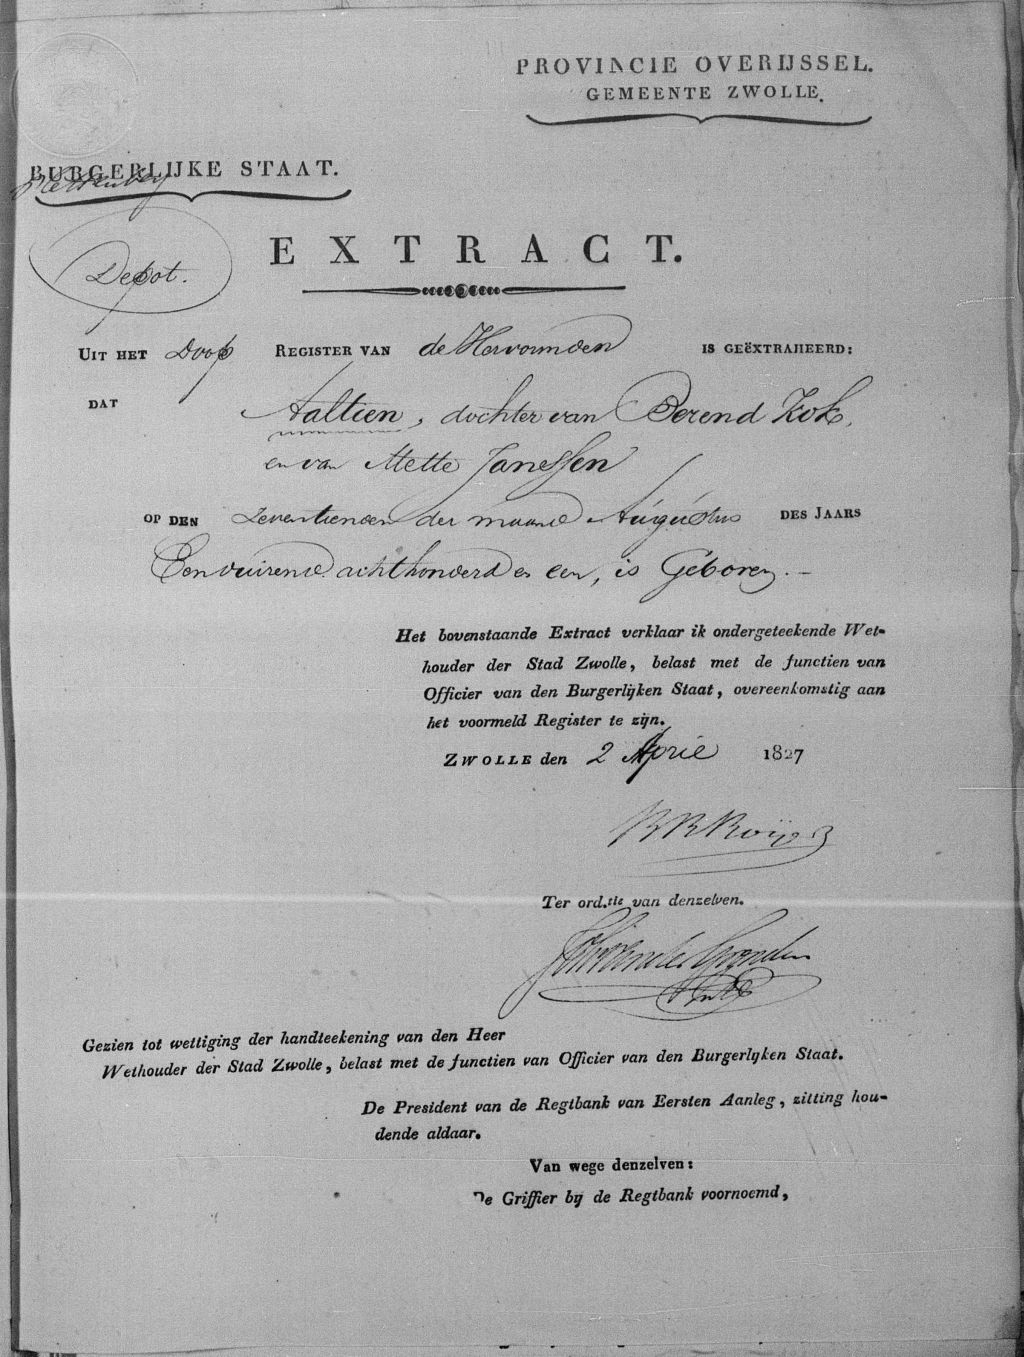 PROVINCIE OVERIJSSEL.
GEMEENTE ZWOLLE.
BURGERLIJKE STAAT.
EXTRACT.
Depot.
UIT HET Doop REGISTER VAN de Hervormden IS GEËXTRAHEERD:
DAT Aaltien, dochter van Berend Kok,
en van Mette Janssen
OP DEN Zeventienden der maand Augustus DES JAARS
Eenduizend achthonderd en een, is Geboren. —
Het bovenstaande Extract verklaar ik ondergeteekende Wet-
houder der Stad Zwolle, belast met de functien van
Officier van den Burgerlijken Staat, overeenkomstig aan
het voormeld Register te zijn.
ZWOLLE den 2 April 1827
Ter ord.tie van denzelven.
Gezien tot wettiging der handteekening van den Heer
Wethouder der Stad Zwolle, belast met de functien van Officier van den Burgerlyken Staat.
De President van de Regtbank van Eersten Aanleg, zitting hou-
dende aldaar.
Van wege denzelven:
De Griffier by de Regtbank voornoemd,